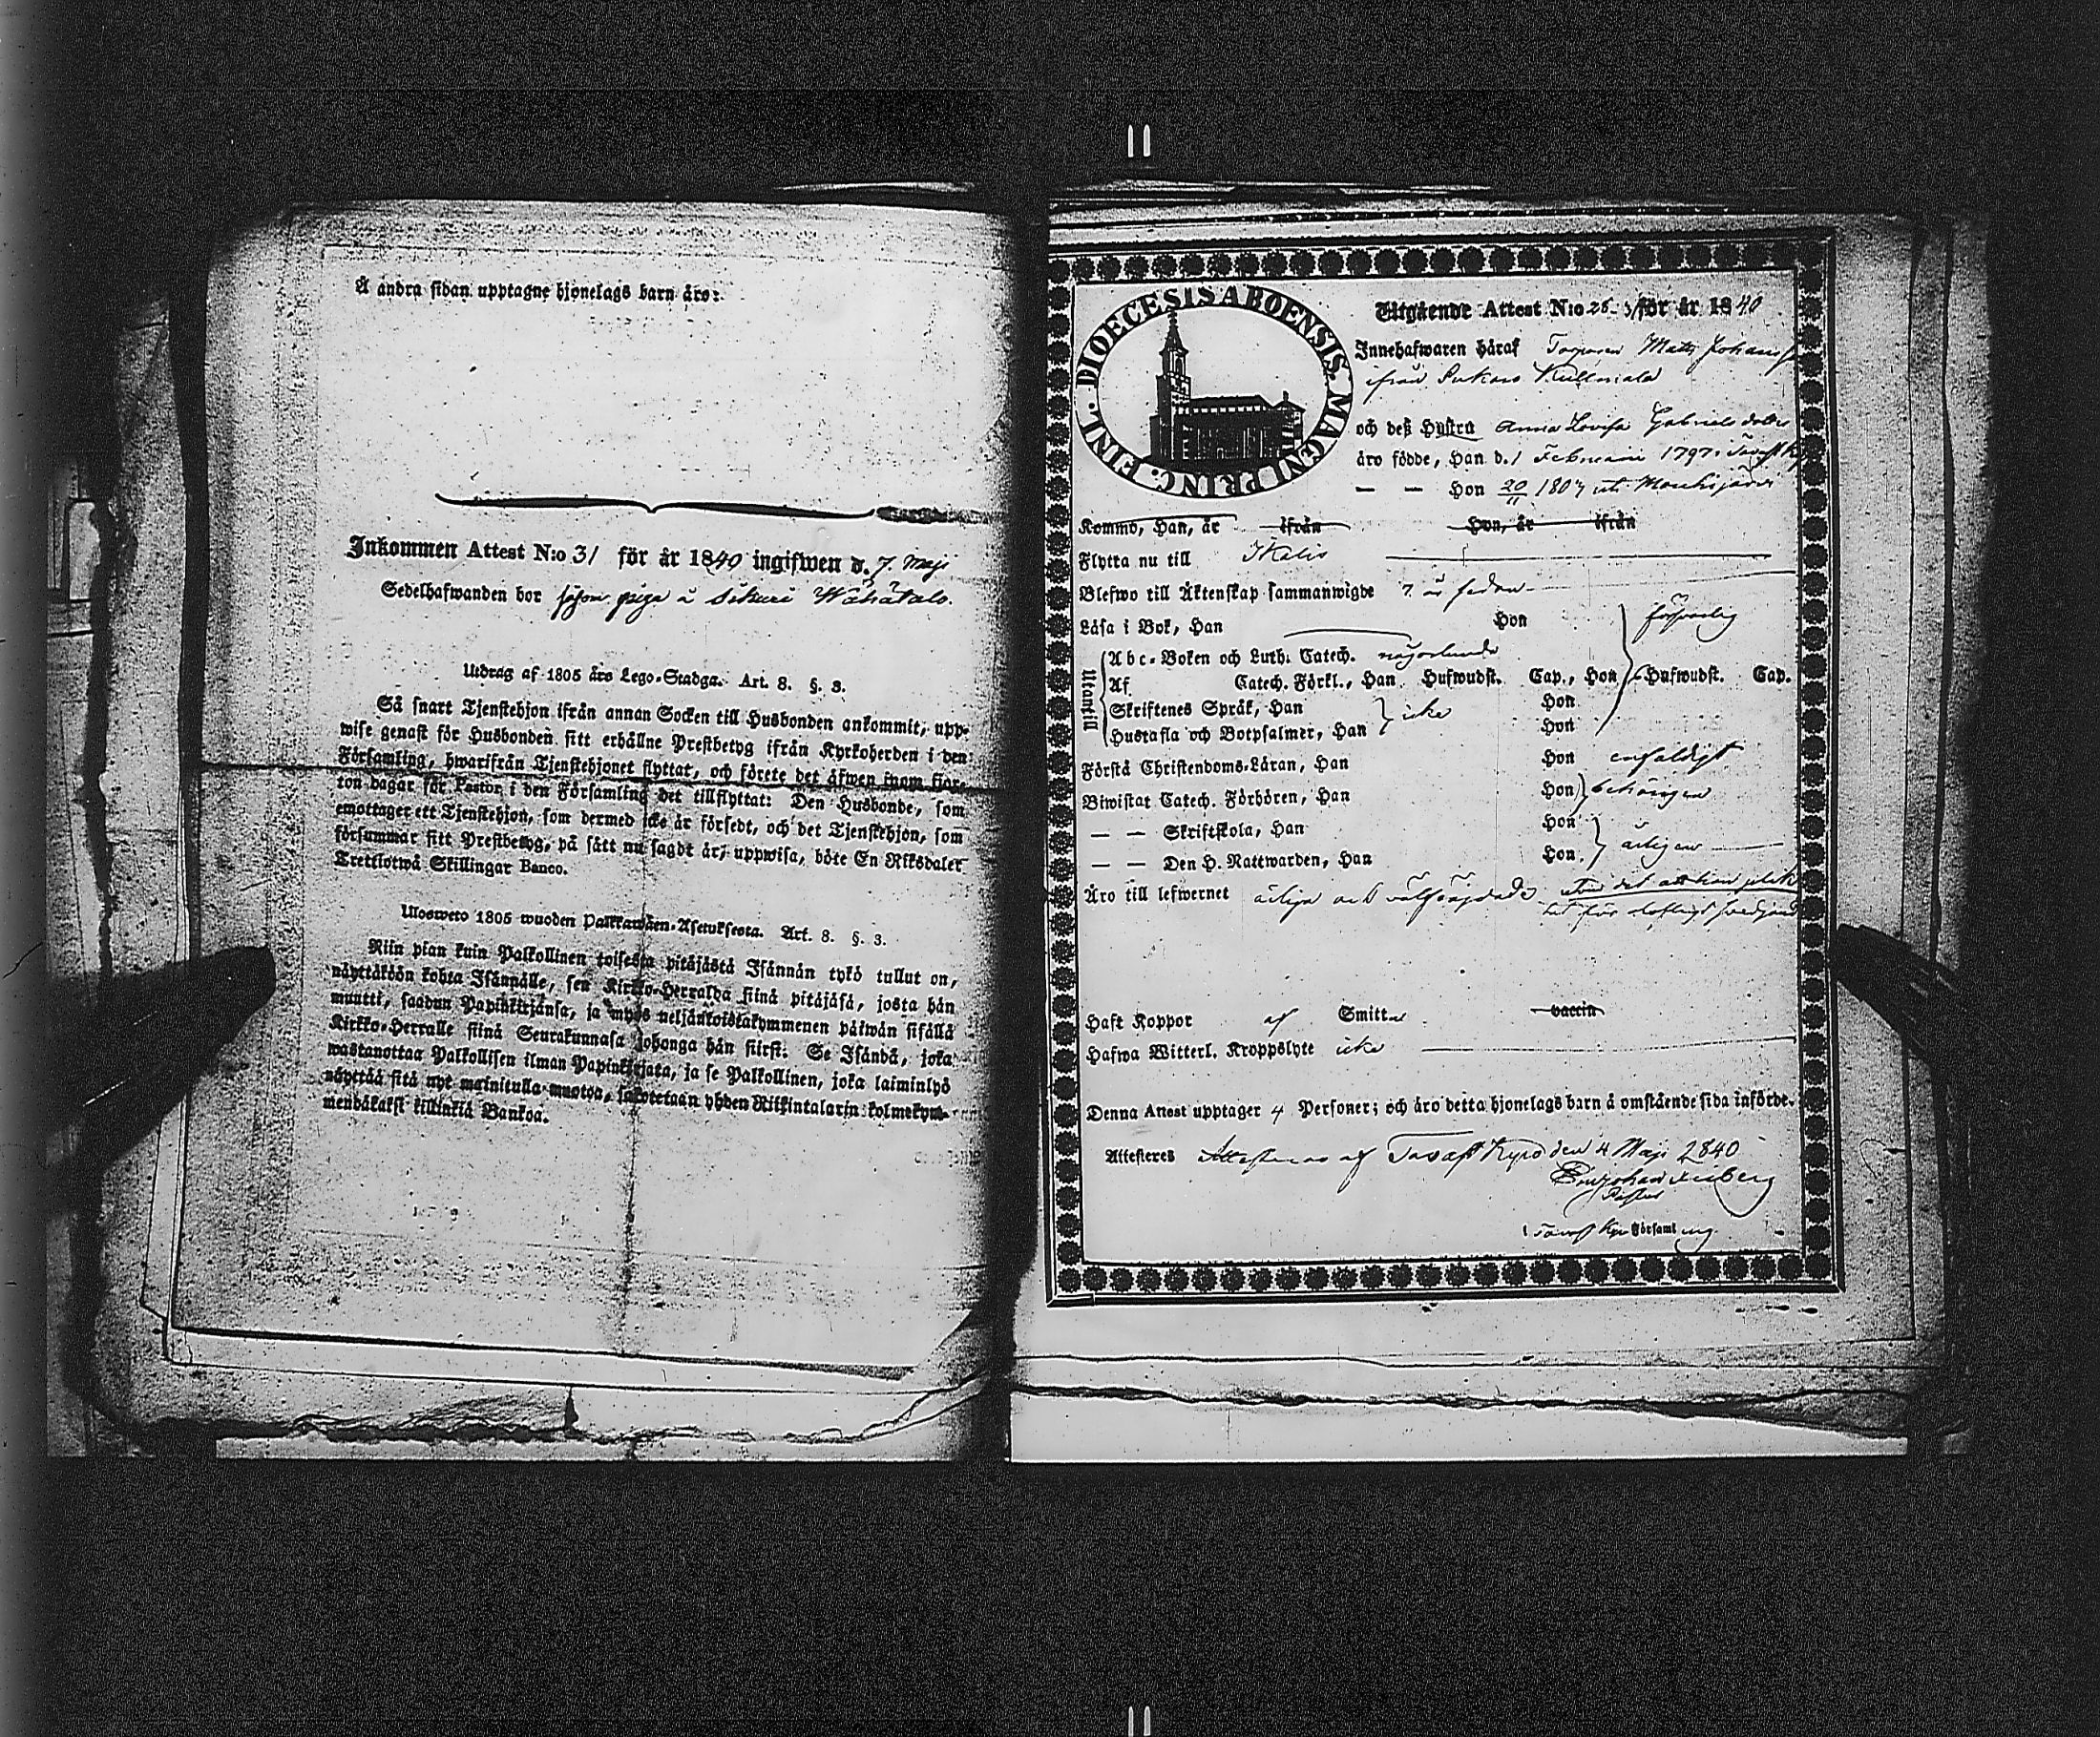 Å andra sidan upptagne hjonelags barn äro:
Inkommen Attest N:o 31 för år 1840 ingifwen d. 7 Maji
Sedelhafwanden bor såsom piga å Sikuri Wähätalo.
Utdrag af 1805 års Lego-Stadga. Art. 8. §. 3.
Så snart Tjenstehjon ifrån annan Socken till Husbonden ankommit, upp-
wise genast för Husbonden sitt erhållne Prestbetyg ifrån Kyrkoherden i den
Församling, hwarifrån Tjenstehjonet flyttat, och förete det äfwen inom fjor-
ton dagar för Pastor i den Församling det tillflyttat: Den Husbonde, som
emottager ett Tjenstehjon, som dermed icke är försedt, och det Tjenstehjon, som
försummar sitt Prestbetyg, på sätt nu sagdt är, uppwisa, böte En Riksdaler
Trettiotwå Skillingar Banco.
Ulosweto 1805 wuoden Palkkawäen-Asetuksesta. Art. 8. §. 3.
Niin pian kuin Palkollinen toisesta pitäjästä Isännän tykö tullut on,
näyttäköön kohta Isännälle, sen Kirkko-Herralda siinä pitäjäsä, josta hän
muutti, saadun Papinkirjansa, ja myös neljäntoistakymmenen päiwän sisällä
Kirkko-Herralle siinä Seurakunnasa johonga hän siirsi: Se Isändä, joka
wastanottaa Palkollisen ilman Papinkirjata, ja se Palkollinen, joka laiminlyö
näyttää sitä nyt mainitulla muotoa, sakotetaan yhden Riikintalarin kolmekym-
mendäkaksi killinkiä Bankoa.
DIOECESIS ABOENSIS. MAGNI PRINC. FINL.
Utgående Attest N:o 26 för år 1840
Innehafwaren häraf Torparen Matts Johansson
ifrån Kullmala
och deß Hustru Anna Lovisa Gabrielsdotter
äro födde, Han d. 1 Februarii 1797 i Tavast Kyro
— — Hon 20/11 1807 uti Mouhijärvi
Kommo, Han, år ifrån Hon, år ifrån
Flytta nu till Ikalis
Blefwo till Äktenskap sammanwigde 7 år sedan
Läsa i Bok, Han Hon försvarlig
Utantill
Abc-Boken och Luth. Catech. någorlunda
Af Catech. Förkl., Han Hufwudst. Cap., Hon Hufwudst. Cap.
Skriftenes Språk, Han icke Hon
Hustafla och Botpsalmer, Han Hon
Förstå Christendoms-Läran, Han Hon enfaldigt
Biwistat Catech. Förhören, Han Hon behörigen
— — Skriftskola, Han Hon
— — Den H. Nattwarden, Han Hon årligen
Äro till lefwernet ärliga och välfrejdade utom det att han
för
Haft Koppor af Smitta vaccin
Hafwa Witterl. Kroppslyte icke
Denna Attest upptager 4 Personer; och äro detta hjonelags barn å omstående sida införde.
Attesteras af Tavast Kyro den 4 Maji 1840
Pastor
i Tavast Kyro Församling